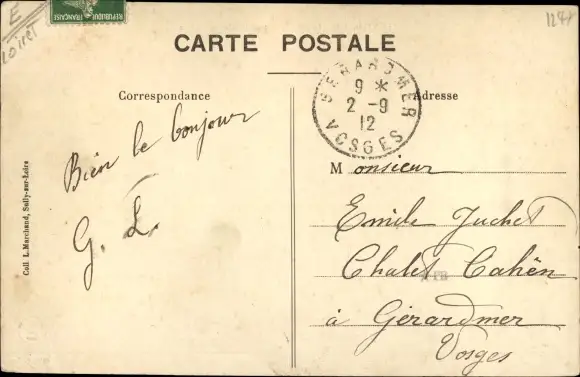 E
Loiret
REPUBLIQUE FRANÇAISE
CARTE POSTALE
Correspondance
Adresse
GERARDMER
9 *
2 - 9
12
VOSGES
Bien le bonjour
G. L.
Monsieur
Emile Juchet
Chalet Cahën
à Gérardmer
Vosges
Coll. L. Marchand, Sully-sur-Loire